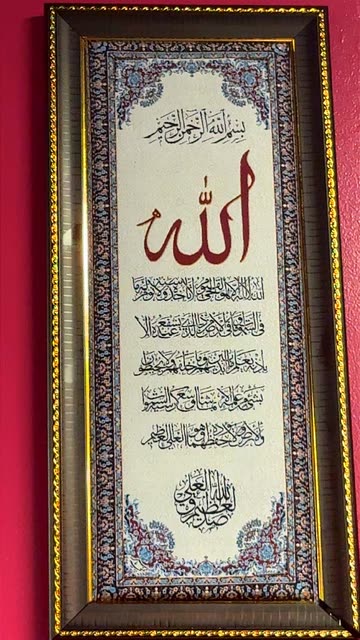 بسم الله الرحمن الرحيم
الله
الله لا إله إلا هو الحي القيوم لا تأخذه سنة ولا نوم له ما
في السموات وما في الأرض من ذا الذي يشفع عنده إلا
بإذنه يعلم ما بين أيديهم وما خلفهم ولا يحيطون
بشيء من علمه إلا بما شاء وسع كرسيه السموات
والأرض ولا يؤده حفظهما وهو العلي العظيم
صدق الله العلي العظيم